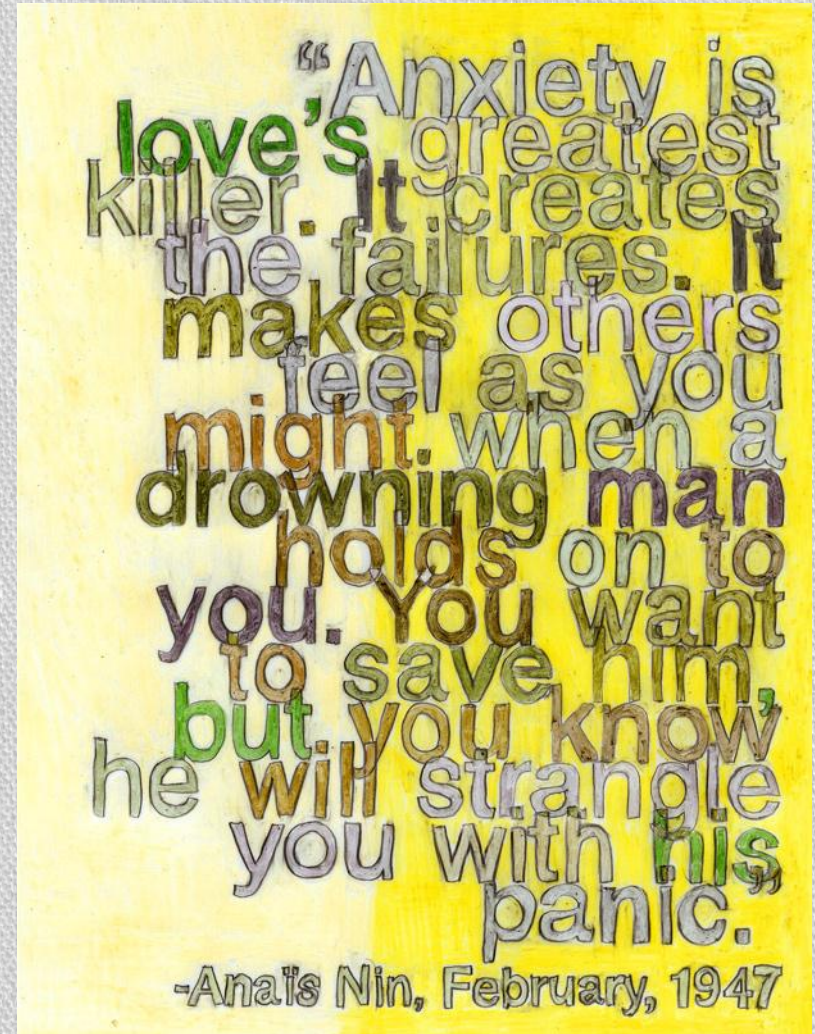 “Anxiety is
love’s greatest
killer. It creates
the failures. It
makes others
feel as you
might when a
drowning man
holds on to
you. You want
to save him,
but you know
he will strangle
you with his
panic.”
-Anaïs Nin, February, 1947